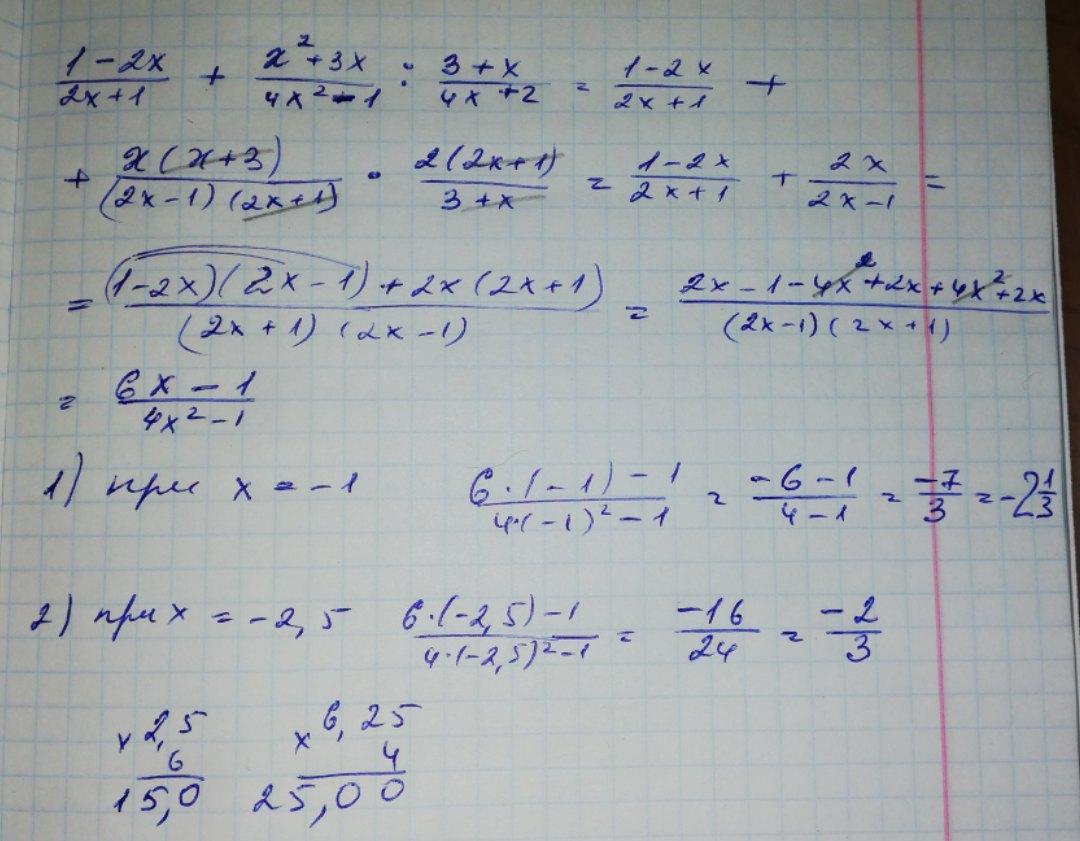 (1-2x)/(2x+1) + (x²+3x)/(4x²-1) : (3+x)/(4x+2) = (1-2x)/(2x+1) +
+ (x(x+3))/((2x-1)(2x+1)) · (2(2x+1))/(3+x) = (1-2x)/(2x+1) + (2x)/(2x-1) =
= ((1-2x)(2x-1)+2x(2x+1))/((2x+1)(2x-1)) = (2x-1-4x²+2x+4x²+2x)/((2x-1)(2x+1))
= (6x-1)/(4x²-1)
1) при x = -1 (6·(-1)-1)/(4·(-1)²-1) = (-6-1)/(4-1) = (-7)/3 = -2 1/3
2) при x = -2,5 (6·(-2,5)-1)/(4·(-2,5)²-1) = (-16)/24 = (-2)/3
x 2,5 x 6,25
6 4
15,0 25,00